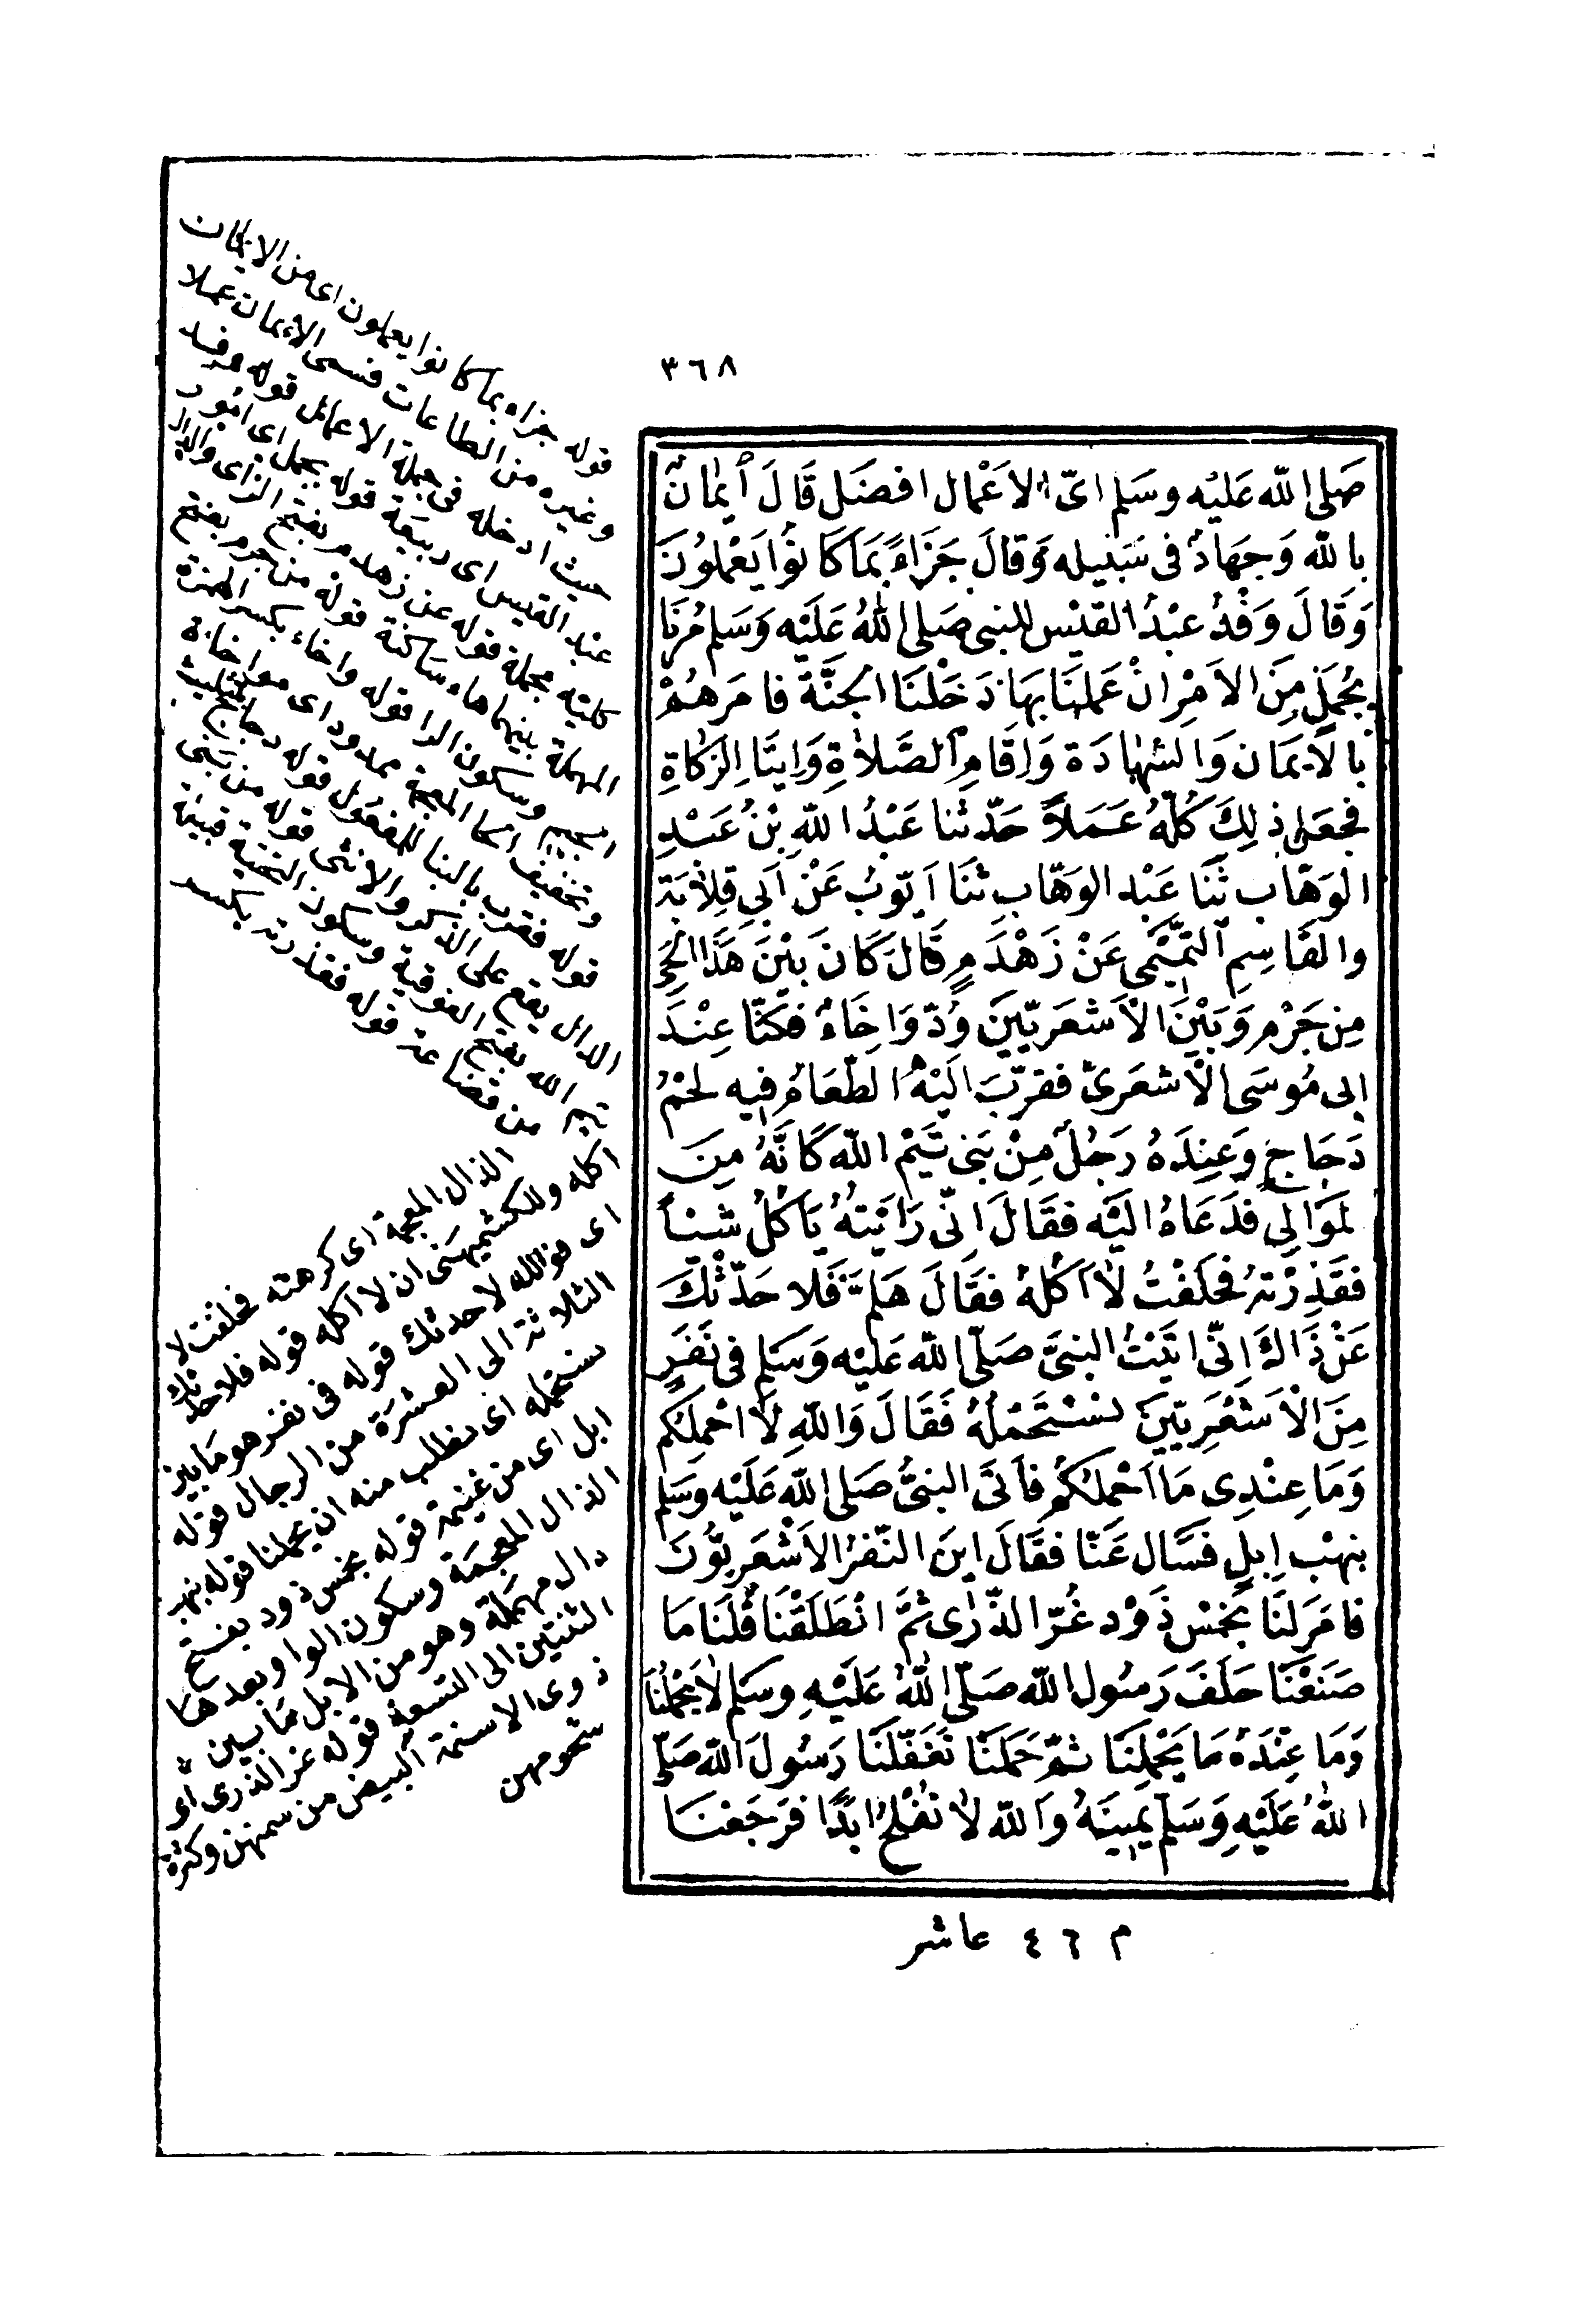 ٣٦٨
صَلى الله عَليْه وسَلم اىّ الاَعْمال افضَل قَالَ اٖيمانٌ
بالله وَجهَادٌ فى سَبيله وَقالَ جَزَاءً بمَا كَانوُا يَعْملوُنَ
وَقَالَ وَفْدُ عبْدُ القيْس للنبى صَلى اللهُ عَلَيْه وَسَلم مُرْنَا
بجُمَلٍ مِنَ الاَمْرِ انْ عَملنَا بهَا دَخَلْنَا الجنَّةَ فامَرهُمْ
بالْاِيمَان وَالشهادَة وَاِقَامِ الصَّلاٰةِ وَايتَاِ الزكَاةِ
فجعَل ذلِكَ كُلّهُ عَمَلاً حَدّثنا عَبْدُ اللهِ بْنُ عَبْدِ
الوَهّاب ثَنَا عَبْد الوَهّابِ ثنَا اَيّوبُ عَنْ اَبِي قِلاٰبَة
والقَاسِمِ التّميْمى عَنْ زَهْدَمٍ قَالَ كَانَ بيْنَ هَذَا الحَىّ
مِن جَرْمٍ وَبَيْنَ الْاَشعَريّينَ وُدّ وَاخَاءٌ فكنّا عِنْدَ
ابى مُوسَى الْاَشعَرىّ فقرّبَ اليْهِ الطّعَامُ فيه لحْمُ
دَجَاجٍ وَعِندَهُ رَجُلٌ مِنْ بَنى تَيْم الله كَانّهُ مِنَ
لمَوَالِى فدَعَاهُ اليْه فقَالَ اِنّى رَايْتهُ يَاكُلُ شيْئاً
فقَذِرْتهُ فحَلَفْتُ لاٰ اَكُلهُ فقَالَ هَلمّ فَلاحَدّثْكَ
عَنْ ذَاكَ اِنّى اتَيْتُ النبىَّ صَلّى الله عَليْه وَسَلم فى نَفَرٍ
مِنَ الْاَشعَرِيّينَ نسْتَحْمِلهُ فَقَالَ وَاللهِ لاَ احْملكُم
وَمَا عِنْدِى مَا اَحْملكُمْ فأتىَ النبىُّ صَلى الله عَلَيْه وَسَلم
بنهْب اِبلٍ فسَال عَنّا فقَالَ اينَ النّفرُ الاَشْعَريّوُنَ
فامَرَ لنَا بخَمْس ذَوْد غُرّ الذّرٰى ثمَّ انْطَلَقْنَا قلنَا مَا
صَنعْنَا حَلفَ رَسُول الله صَلّى اللهُ عَلَيْهِ وسَلم لاٰ يَحْملنَا
وَمَا عِنْدَهُ مَا يَحْملِنَا ثمّ حَمَلنَا تغَفّلنَا رَسُولَ الله صَلى
اللهُ عَلَيْهِ وَسَلم يمينَهُ وَالله لاٰ نفْلحُ ابَدًا فرَجَعْنَا
م ٤٦ عاشر
قوله جزاء بما كانوا يعملون اى من الايمان
وغيره من الطاعات فسمى الايمان عملا
حيث ادخله فى جملة الاعمال قوله وفد
عبد القيس اى ربيعة قوله بجمل اى امور
كلية مجملة قوله عن زهدم بفتح الزاى والدال
المهملة بينهما هاء ساكنة قوله من جرم بفتح
الجيم وسكون الرا قوله واخاء بكسر الهمزة
وتخفيف الخا المعجمة ممدود اى مواخاة
قوله فقرب بالبنا للمفعول قوله دجاج بتثليث
الدال يقع على الذكر والانثى قوله من بنى
تيم الله بفتح الفوقية وسكون التحتية قبيلة
من قضاعة قوله فقذرته بكسر
الذال المعجمة اى كرهته فحلفت لا
اكله وللكشميهنى ان لا اكله قوله فلاحدثك
اى فوالله لاحدثك قوله فى نفر هو ما بين
الثلاثة الى العشرة من الرجال قوله
نستحمله اى نطلب منه ان يحملنا قوله بنهب
ابل اى من غنيمة قوله بخمس ذود بفتح
الذال المعجمة وسكون الواو بعدها
دال مهملة وهو من الابل ما بين
الثنتين الى التسعة قوله غر الذرى اى
ذوى الاسنمة البيض من سمنهن وكثرة
شحومهن